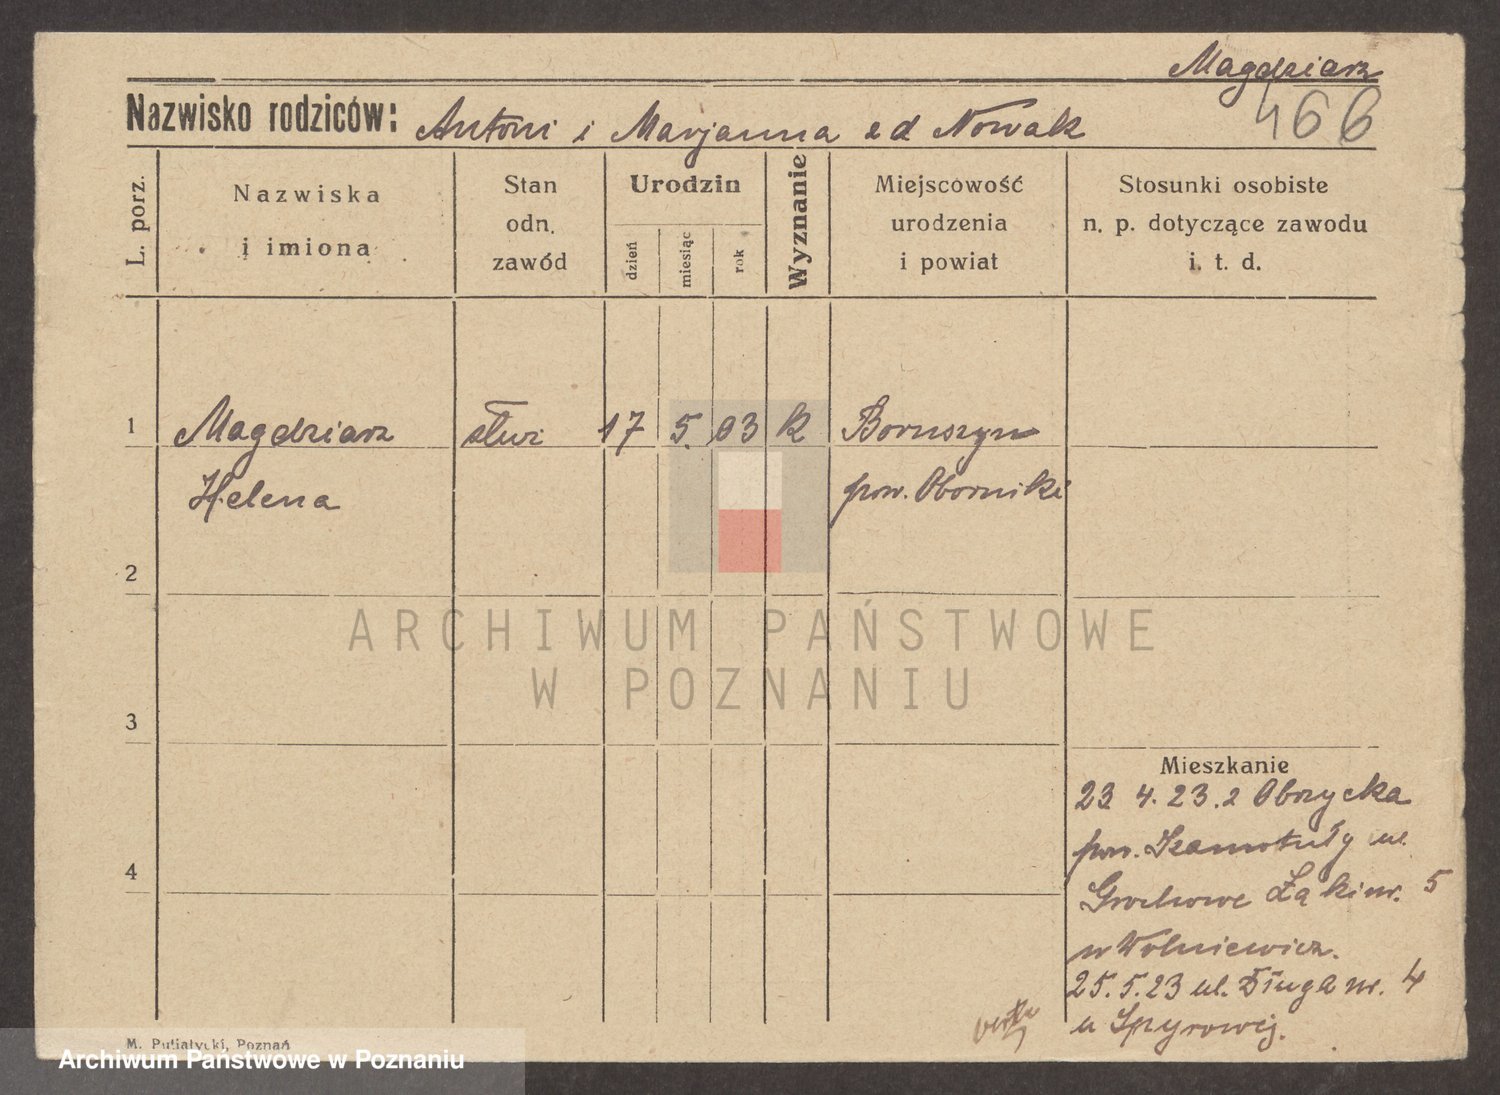 Magdziarz
466
Nazwisko rodziców: Antoni i Marjanna z d Nowak
L. porz.
Nazwiska
i imiona
Stan
odn.
zawód
Urodzin
dzień
miesiąc
rok
Wyznanie
Miejscowość
urodzenia
i powiat
Stosunki osobiste
n. p. dotyczące zawodu
i. t. d.
1 Magdziarz służ 17 5. 03 K Boruszyn
Helena pow. Oborniki
2
ARCHIWUM PAŃSTWOWE
W POZNANIU
3
4
Mieszkanie
23 4. 23. z Obrzycka
pow. Szamotuły ul.
Grochowe Łąki nr. 5
u Wolniewicz.
25. 5. 23 ul. Długa nr. 4
u Spyrowej.
M. Putiatycki, Poznań
Archiwum Państwowe w Poznaniu